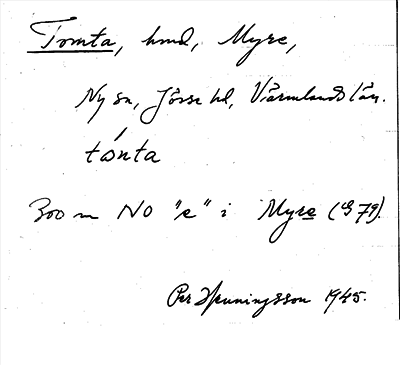 Tomta, hmd, Myre,
Ny sn, Jösse hd, Värmlands län.
tómta
300 m NO "e" i Myre (G 79).
Per Henningsson 1945.